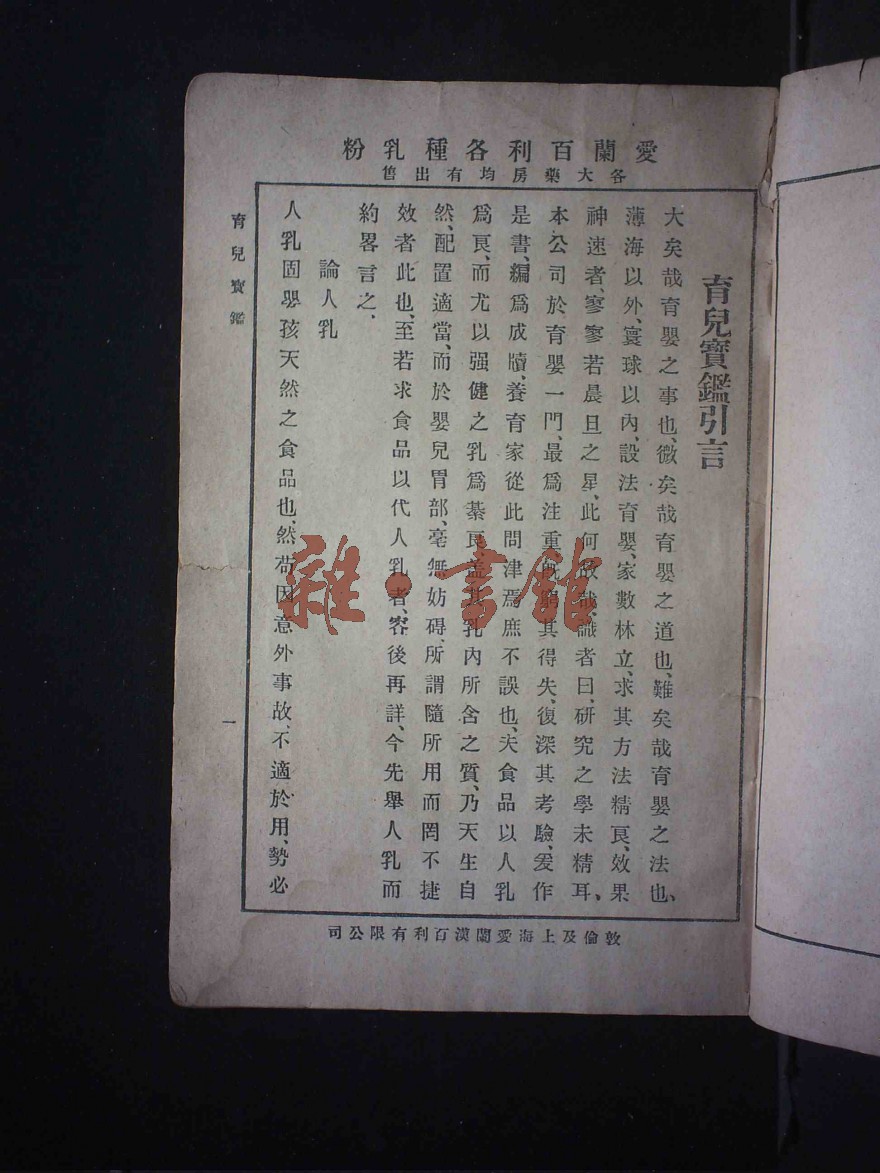 愛蘭百利各種乳粉
各大藥房均有出售
育兒寶鑑引言
大矣哉育嬰之事也、微矣哉育嬰之道也、難矣哉育嬰之法也、
薄海以外、寰球以內、設法育嬰、家數林立、求其方法精良、效果
神速者、寥寥若晨旦之星、此何故哉、識者曰、研究之學未精耳、
本公司於育嬰一門、最爲注重、旣㴑其得失、復深其考驗、爰作
是書、編爲成牘、養育家從此問津焉、庶不誤也、夫食品以人乳
爲良、而尤以强健之乳爲綦良、蓋其乳內所含之質、乃天生自
然、配置適當、而於嬰兒胃部、毫無妨碍、所謂隨所用而罔不捷
效者此也、至若求食品以代人乳者、容後再詳、今先舉人乳而
約畧言之、
論人乳
人乳固嬰孩天然之食品也、然苟因意外事故、不適於用、勢必
育兒寶鑑
一
敦倫及上海愛蘭漢百利有限公司
雜·書館